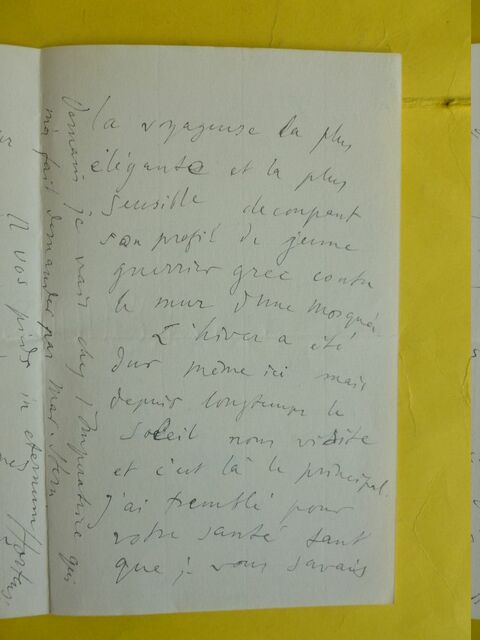 la voyageuse la plus
élégante et la plus
sensible decoupant
son profil de jeune
guerrier grec contre
le mur d'une mosquée
L'hiver a été
dur même ici mais
depuis longtemps le
soleil nous visite
et c'est là le principal.
J'ai tremblé pour
votre santé tant
que je vous savais
Demain je vais chez l'Imperatrice qui
m'a fait demander par Mar. Stern
A vos pieds in eternum